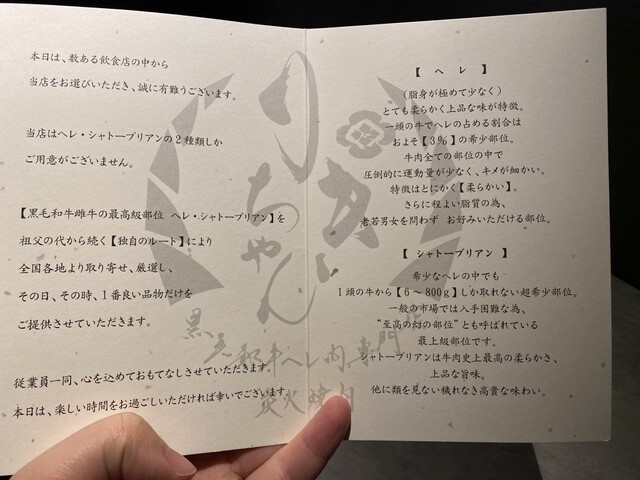 本日は、数ある飲食店の中から
当店をお選びいただき、誠に有難うございます。
当店はヘレ・シャトーブリアンの2種類しか
ご用意がございません。
【黒毛和牛雌牛の最高級部位 ヘレ・シャトーブリアン】を
祖父の代から続く【独自のルート】により
全国各地より取り寄せ、厳選し、
その日、その時、1番良い品物だけを
ご提供させていただきます。
従業員一同、心を込めておもてなしさせていただきます。
本日は、楽しい時間をお過ごしいただければ幸いでございます。
【 ヘレ 】
(脂身が極めて少なく)
とても柔らかく上品な味が特徴。
一頭の牛でヘレの占める割合は
およそ【3%】の希少部位。
牛肉全ての部位の中で
圧倒的に運動量が少なく、キメが細かい。
特徴はとにかく【柔らかい】。
さらに程よい脂質の為、
老若男女を問わず お好みいただける部位。
【 シャトーブリアン 】
希少なヘレの中でも
1頭の牛から【6～800g】しか取れない超希少部位。
一般の市場では入手困難な為、
“至高の幻の部位”とも呼ばれている
最上級部位です。
シャトーブリアンは牛肉史上最高の柔らかさ、
上品な旨味。
他に類を見ない穢れなき高貴な味わい。